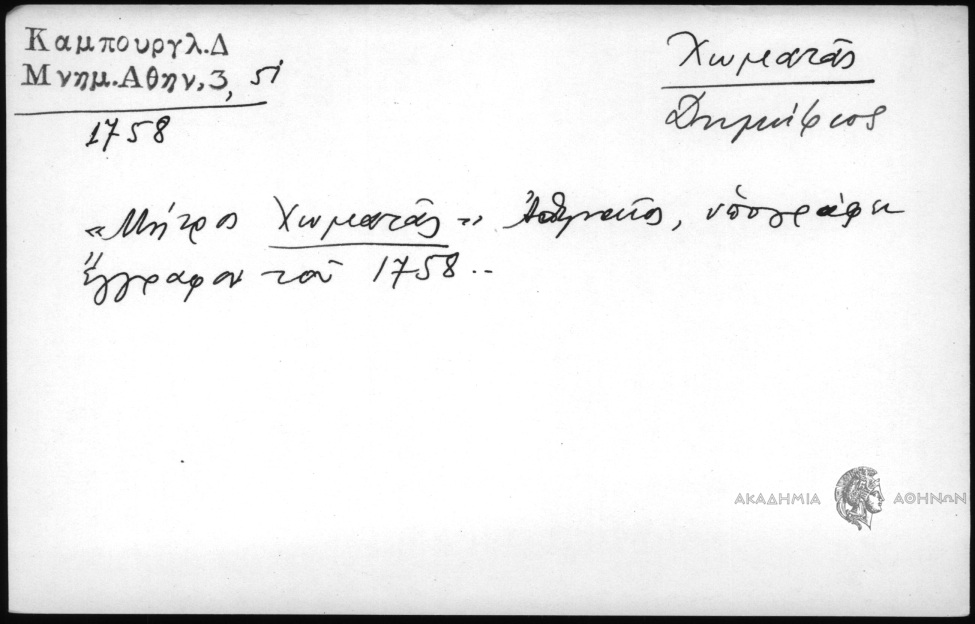 Καμπουργλ.Δ
Μνημ.Αθην,3, 51
1758
Χωματᾶς
Δημήτριος
«Μήτρος Χωματᾶς» Ἀθηναῖος, ὑπογράφει
ἔγγραφον τοῦ 1758..
ΑΚΑΔΗΜΙΑ ΑΘΗΝΩΝ